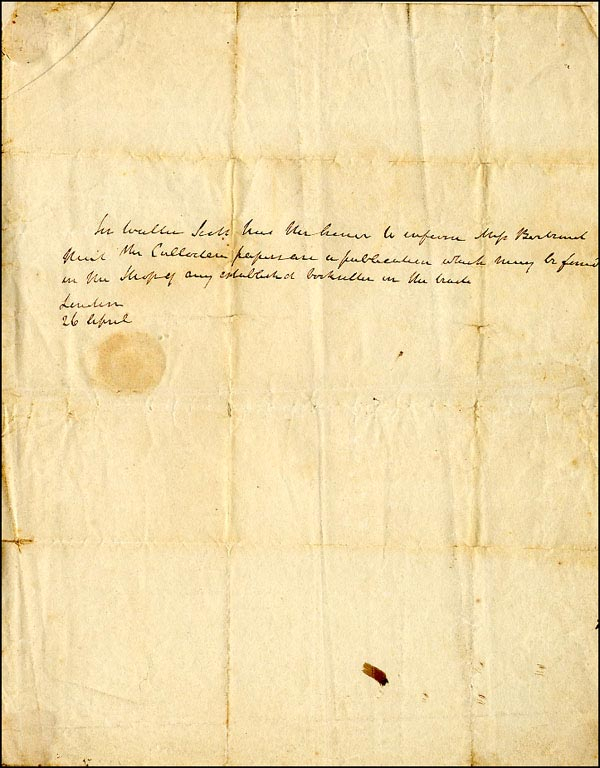 Sir Walter Scott has the honor to inform Miss Bertrand
that the Culloden papers are a publication which may be found
in the Shop of any established bookseller in the trade
London
26 April